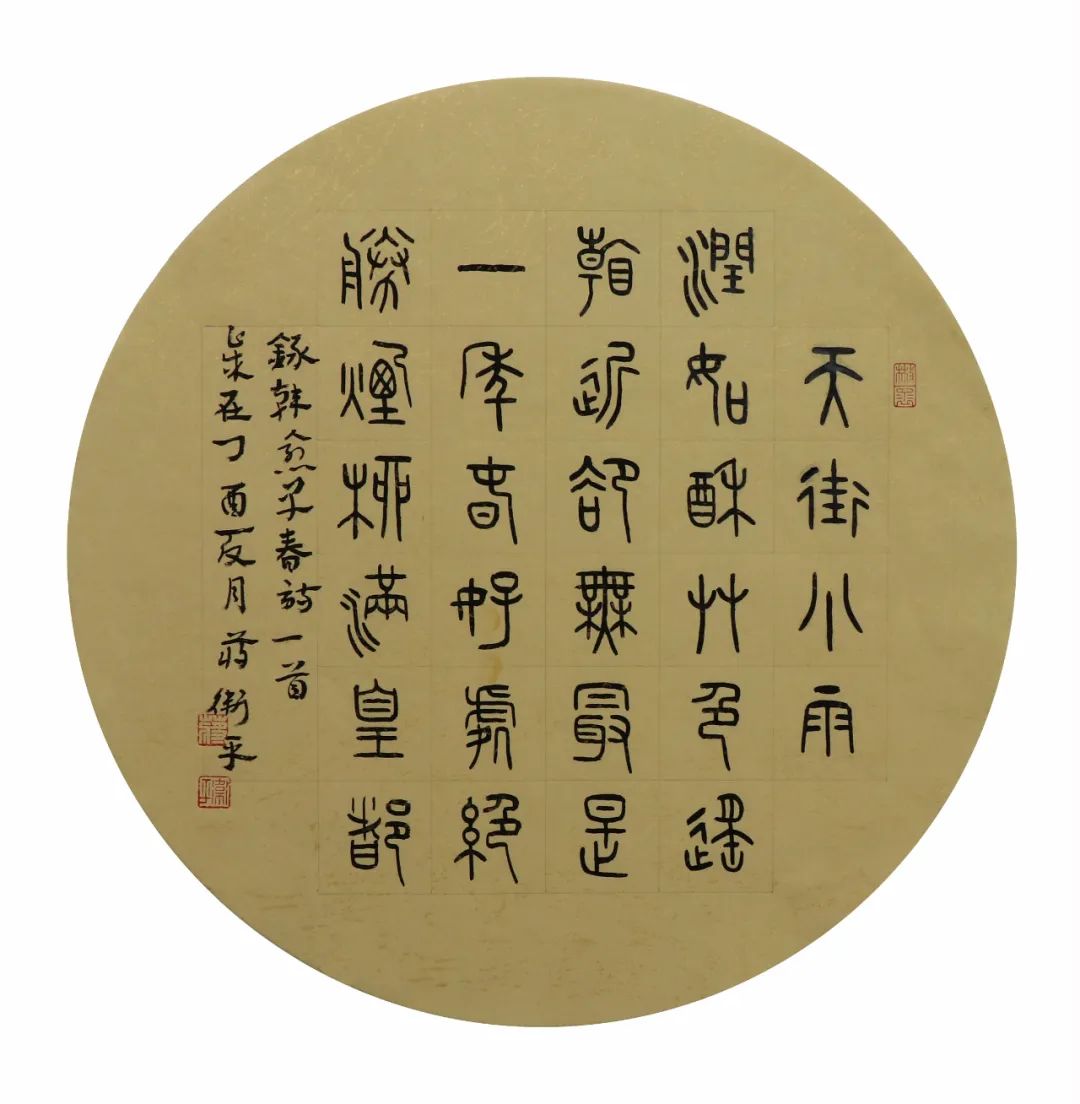 天街小雨
潤如酥艸色遥
看近卻無最是
一年春好處絕
勝煙柳滿皇都
錄韓愈早春詩一首
歲在丁酉夏月蔣衛平